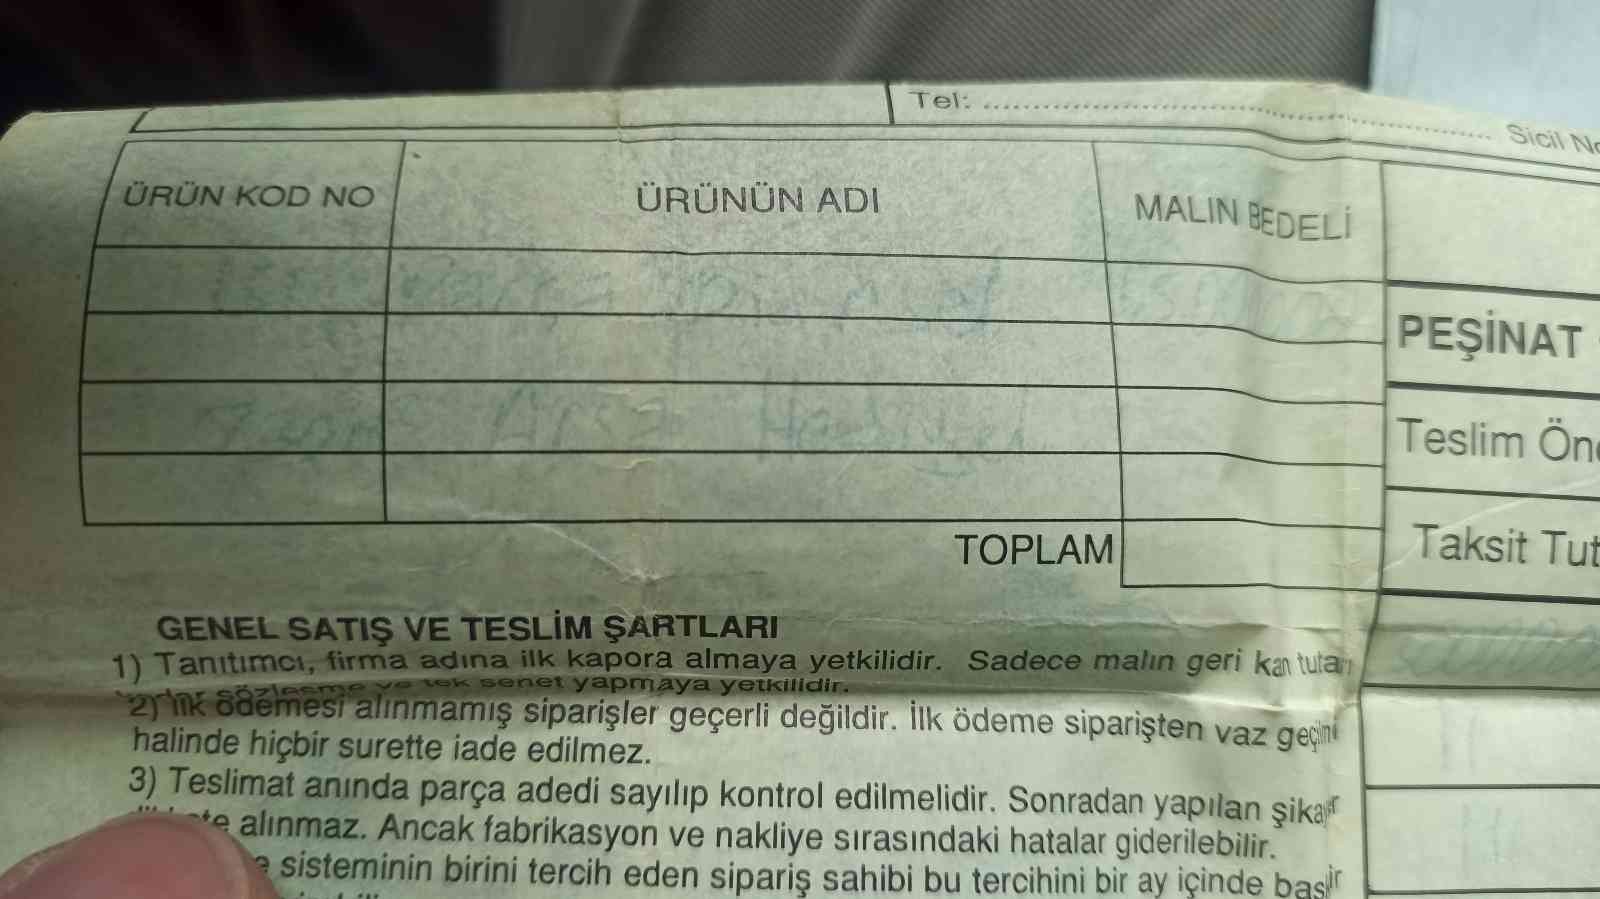 Tel: ........................................ Sicil No
ÜRÜN KOD NO ÜRÜNÜN ADI MALIN BEDELİ
PEŞİNAT
Teslim Ön
TOPLAM Taksit Tut
GENEL SATIŞ VE TESLİM ŞARTLARI
1) Tanıtımcı, firma adına ilk kapora almaya yetkilidir. Sadece malın geri kan tutarı
kadar sözleşme ve tek senet yapmaya yetkilidir.
2) İlk ödemesi alınmamış siparişler geçerli değildir. İlk ödeme siparişten vaz
halinde hiçbir surette iade edilmez.
3) Teslimat anında parça adedi sayılıp kontrol edilmelidir. Sonradan yapılan
alınmaz. Ancak fabrikasyon ve nakliye sırasındaki hatalar giderilebilir.
sisteminin birini tercih eden sipariş sahibi bu tercihini bir ay içinde